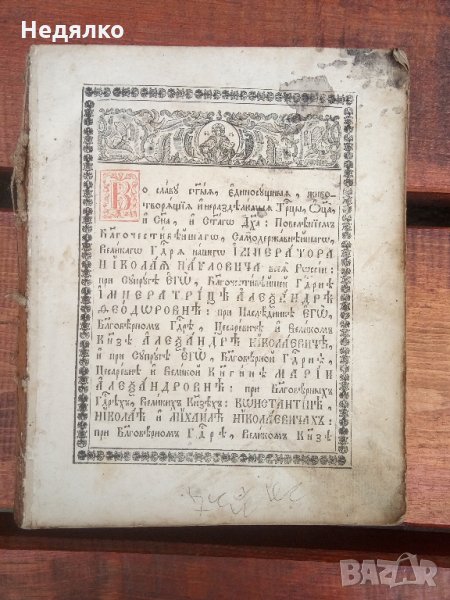 Недялко
Во славу ст҃ыѧ, єдиносущныѧ, живо-
творѧщїѧ и нераздѣлныѧ Трⷪ҇цы, Ѻц҃а,
и Сн҃а, и Ст҃агѡ Дх҃а: Повелѣнїемъ
Бл҃гочестивѣйшагѡ, Самодержавнѣйшагѡ,
Великагѡ Гдⷭ҇рѧ нашегѡ ІМПЕРАТОРА
НІКОЛАѦ ПАѴЛОВИЧА всеѧ Рѡссїи:
при Сꙋпрꙋгѣ ЕГѠ, Бл҃гочестивѣйшей Гдⷭ҇рнѣ
ІМПЕРАТРИЦѢ АЛЕѮАНДРѢ
ѲЕОДѠРОВНѢ: при Наслѣдникѣ ЕГѠ,
Бл҃говѣрномъ Гдⷭ҇рѣ, Цесаревичѣ и Великомъ
Кнѧзѣ АЛЕѮАНДРѢ НІКОЛАЕВИЧѢ,
и при Сꙋпрꙋгѣ ЕГѠ, Бл҃говѣрной Гдⷭ҇рнѣ,
Цесаревнѣ и Великой Кнѧгинѣ МАРІИ
АЛЕѮАНДРОВНѢ: при Бл҃говѣрныхъ
Гдⷭ҇рѣхъ, Великихъ Кнѧзѣхъ: КѠНСТАНТІНѢ,
НІКОЛАѢ и МІХАИЛѢ НІКОЛАЕВИЧАХЪ:
при Бл҃говѣрномъ Гдⷭ҇рѣ, Великомъ Кнѧзѣ
BAZAR